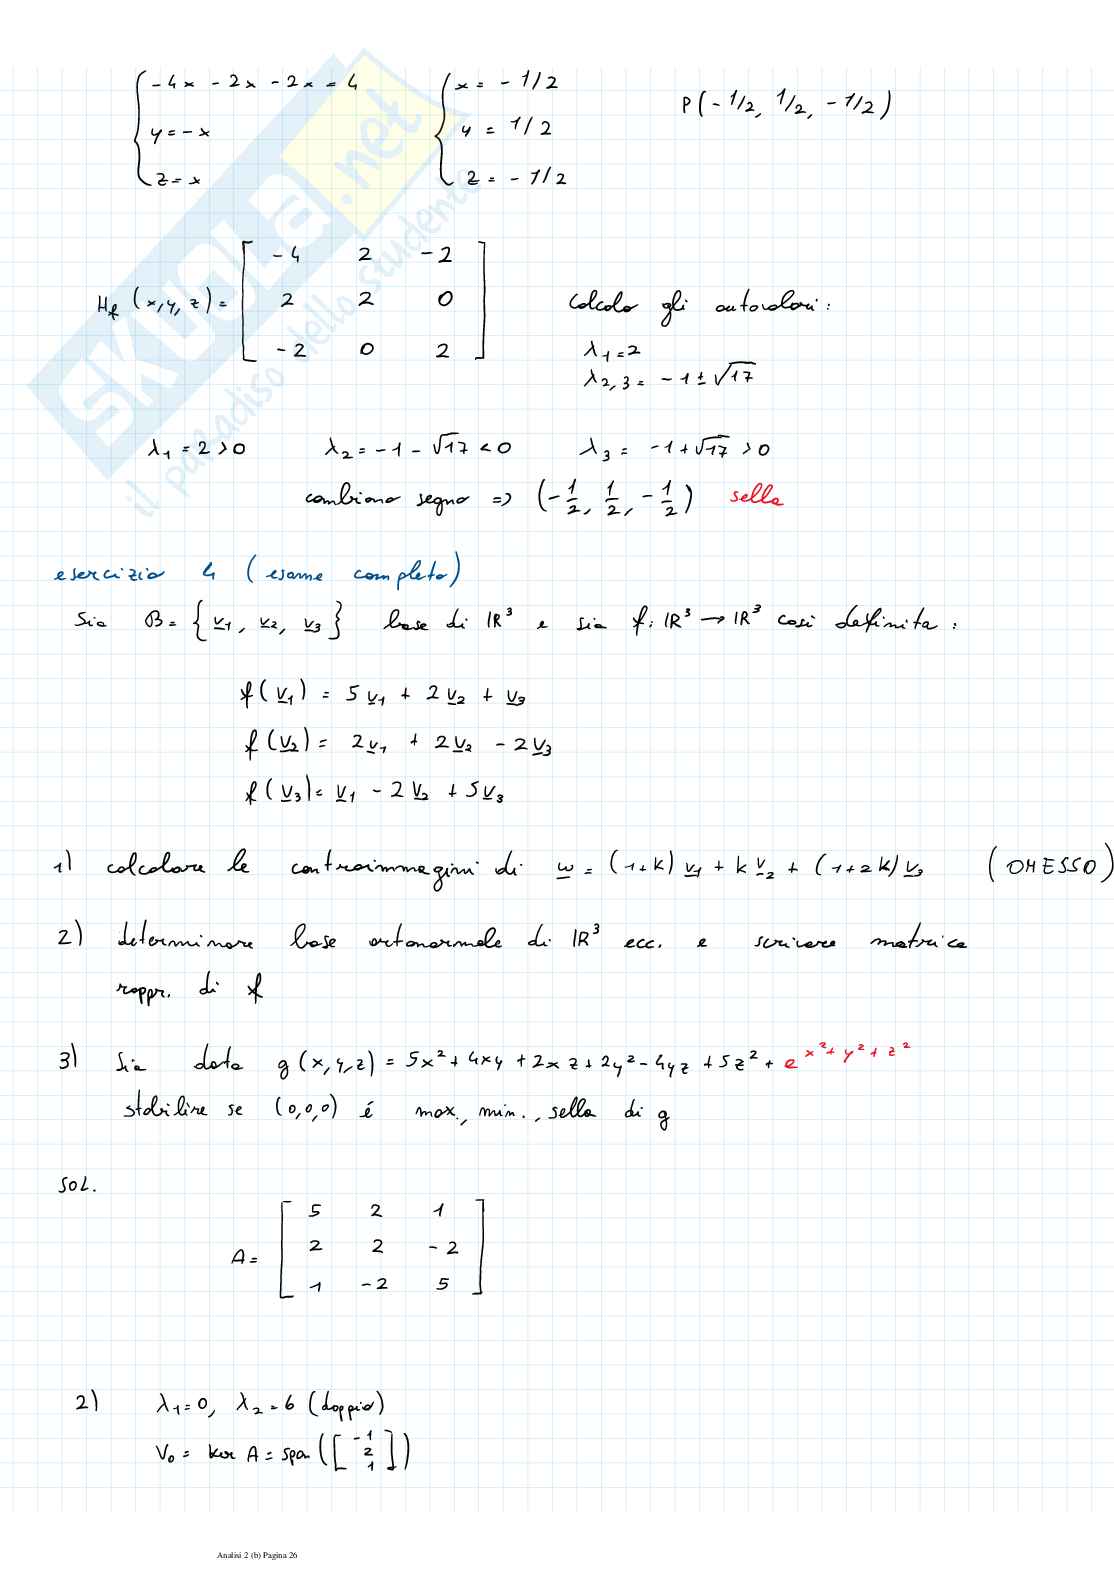 { -4x - 2x - 2x = 4    { x = -1/2    P(-1/2, 1/2, -1/2)
y = -x    y = 1/2
z = x    z = -1/2
SKUOLA.net
il paradiso dello studente
-4 2 -2
H_f (x,y,z) = [ 2 2 0 ]    calcolo gli autovalori:
-2 0 2    λ1 = 2
λ2,3 = -1 ± √17
λ1 = 2 > 0    λ2 = -1 - √17 < 0    λ3 = -1 + √17 > 0
cambiano segno => (-1/2, 1/2, -1/2) sella
esercizio 4 (esame completo)
Sia B = {v1, v2, v3} base di ℝ³ e sia f: ℝ³ → ℝ³ così definita:
f(v1) = 5v1 + 2v2 + v3
f(v2) = 2v1 + 2v2 - 2v3
f(v3) = v1 - 2v2 + 5v3
1) calcolare le controimmagini di w = (1+k)v1 + kv2 + (1+2k)v3 (OMESSO)
2) determinare base ortonormale di ℝ³ ecc. e scrivere matrice
rappr. di f
3) Sia data g(x,y,z) = 5x² + 4xy + 2xz + 2y² - 4yz + 5z² + e^(x²+y²+z²)
stabilire se (0,0,0) é max., min., sella di g
SOL.
5 2 1
A = [ 2 2 -2 ]
1 -2 5
2) λ1 = 0, λ2 = 6 (doppio)
V0 = ker A = span ([-1 2 1])
Analisi 2 (b) Pagina 26